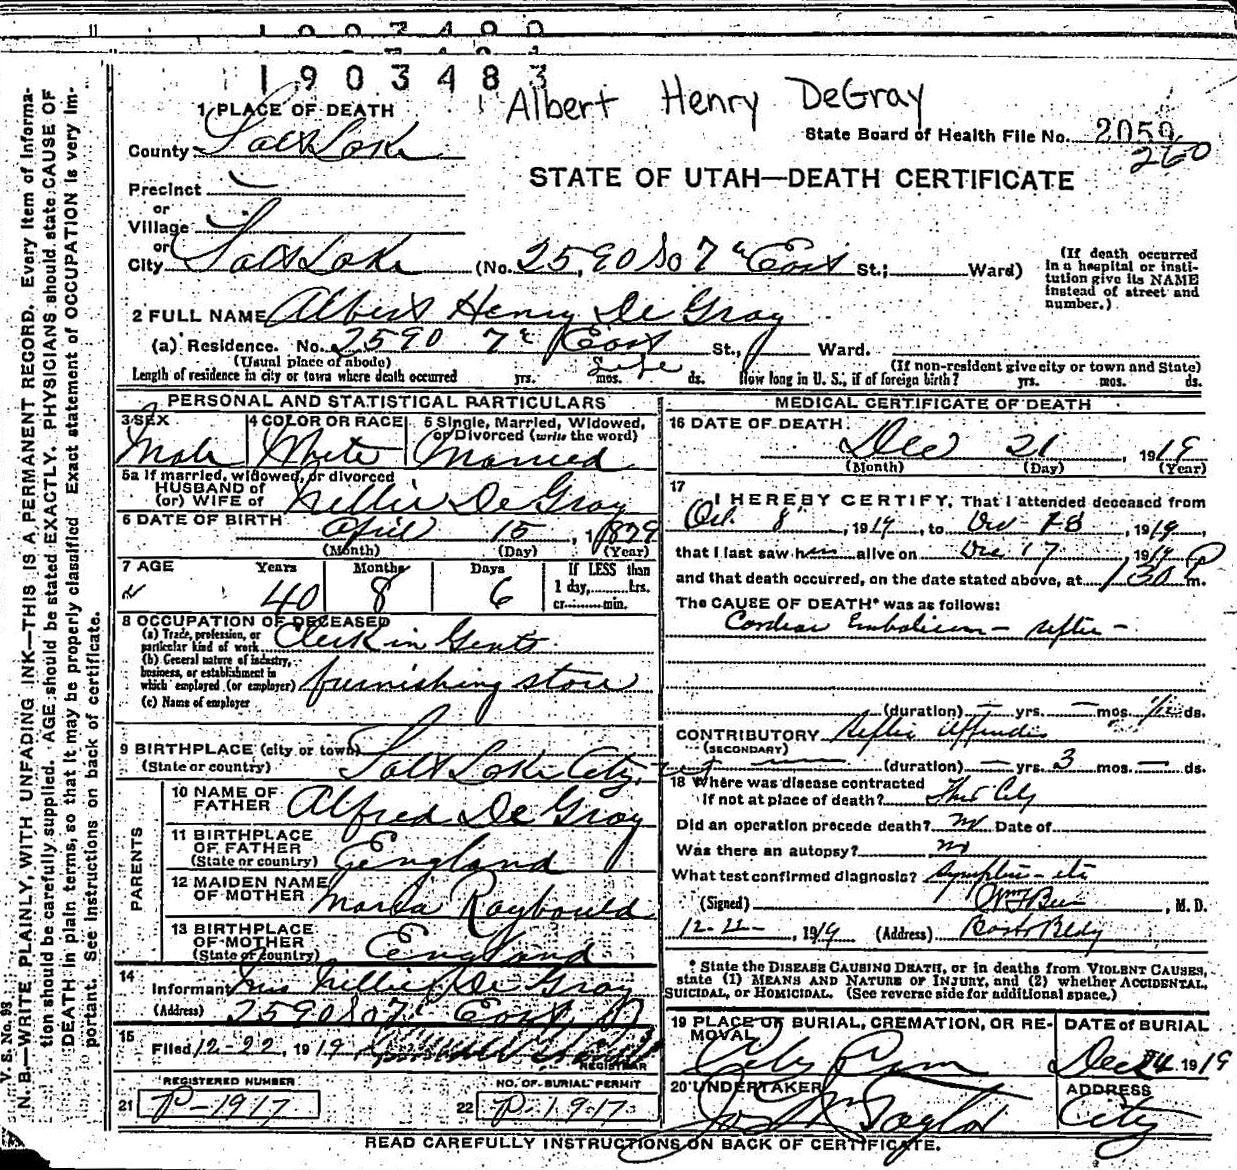 11 1903480
1903483
Albert Henry DeGray
1 PLACE OF DEATH
State Board of Health File No. 2059
260
County Salt Lake
STATE OF UTAH—DEATH CERTIFICATE
Precinct
or
Village
or
City Salt Lake (No. 2590 So 7th East St.; Ward)
(If death occurred in a hospital or institution give its NAME instead of street and number.)
2 FULL NAME Albert Henry De Gray
(a) Residence. No. 2590 7th East St., Ward.
(Usual place of abode) (If non-resident give city or town and State)
Length of residence in city or town where death occurred yrs. mos. ds. Life How long in U. S., if of foreign birth? yrs. mos. ds.
PERSONAL AND STATISTICAL PARTICULARS
3 SEX Male
4 COLOR OR RACE White
5 Single, Married, Widowed, or Divorced (write the word) Married
5a If married, widowed, or divorced
HUSBAND of
(or) WIFE of Nellie De Gray
6 DATE OF BIRTH April 15, 1879
(Month) (Day) (Year)
7 AGE Years Months Days If LESS than
1 day,........hrs.
or........min.
40 8 6
8 OCCUPATION OF DECEASED
(a) Trade, profession, or particular kind of work Clerk in Gents
(b) General nature of industry, business, or establishment in which employed (or employer) furnishing store
(c) Name of employer
9 BIRTHPLACE (city or town)
(State or country) Salt Lake City,
PARENTS
10 NAME OF FATHER Alfred De Gray
11 BIRTHPLACE OF FATHER
(State or country) England
12 MAIDEN NAME OF MOTHER Maria Raybould
13 BIRTHPLACE OF MOTHER
(State or country) England
14 Informant Mrs Nellie De Gray
(Address) 2590 So 7th East St
15 Filed 12-22, 1919
REGISTRAR
REGISTERED NUMBER
21 P-1917
NO. OF BURIAL PERMIT
22 P-1917
MEDICAL CERTIFICATE OF DEATH
16 DATE OF DEATH
Dec 21, 1919
(Month) (Day) (Year)
17 I HEREBY CERTIFY, That I attended deceased from
Oct. 8", 1919, to Dec 18, 1919,
that I last saw him alive on Dec 17, 1919
and that death occurred, on the date stated above, at 1 30 P m.
The CAUSE OF DEATH* was as follows:
Cardiac Embolism — septic —
(duration) — yrs. — mos. 1/2 ds.
CONTRIBUTORY Septic
(SECONDARY)
(duration) — yrs. 3 mos. — ds.
18 Where was disease contracted
if not at place of death? This City
Did an operation precede death? no Date of
Was there an autopsy? no
What test confirmed diagnosis? Symptoms - etc
(Signed) , M. D.
12-22-, 1919 (Address) Bldg
* State the DISEASE CAUSING DEATH, or in deaths from VIOLENT CAUSES, state (1) MEANS AND NATURE OF INJURY, and (2) whether ACCIDENTAL, SUICIDAL, or HOMICIDAL. (See reverse side for additional space.)
19 PLACE OF BURIAL, CREMATION, OR REMOVAL City Cem
DATE of BURIAL
Dec 24 1919
20 UNDERTAKER Jos Wm Taylor
ADDRESS
City
READ CAREFULLY INSTRUCTIONS ON BACK OF CERTIFICATE.
V. S. No. 93
N. B.—WRITE PLAINLY, WITH UNFADING INK—THIS IS A PERMANENT RECORD. Every item of information should be carefully supplied. AGE should be stated EXACTLY. PHYSICIANS should state CAUSE OF DEATH in plain terms, so that it may be properly classified. Exact statement of OCCUPATION is very important. See instructions on back of certificate.